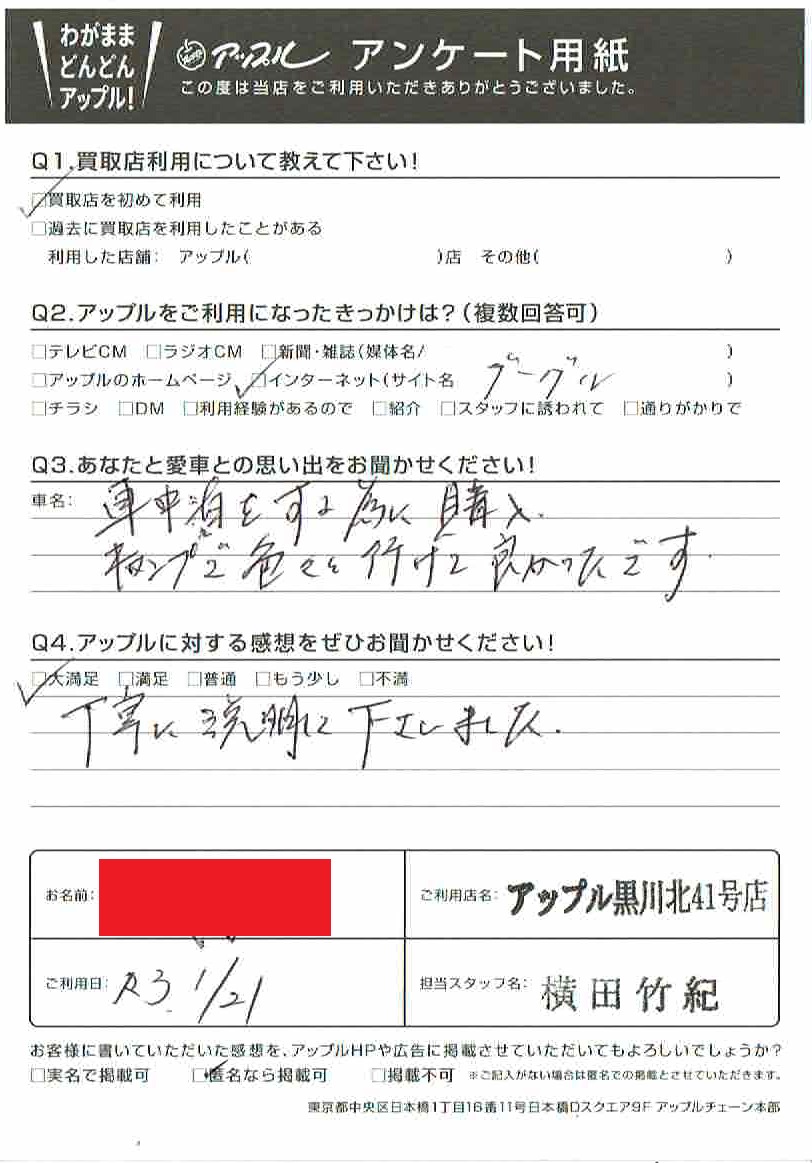 わがまま
どんどん
アップル!
アップル アンケート用紙
この度は当店をご利用いただきありがとうございました。
Q1.買取店利用について教えて下さい!
☑買取店を初めて利用
□過去に買取店を利用したことがある
利用した店舗: アップル( )店 その他( )
Q2.アップルをご利用になったきっかけは?(複数回答可)
□テレビCM □ラジオCM □新聞・雑誌(媒体名/ )
□アップルのホームページ ☑インターネット(サイト名 グーグル )
□チラシ □DM □利用経験があるので □紹介 □スタッフに誘われて □通りがかりで
Q3.あなたと愛車との思い出をお聞かせください!
車名: 車中泊をする為に購入.
キャンプで色々と行けて良かったです.
Q4.アップルに対する感想をぜひお聞かせください!
☑大満足 □満足 □普通 □もう少し □不満
丁寧に説明して下さいました.
お名前:
ご利用店名: アップル黒川北41号店
ご利用日: R3 1/21
担当スタッフ名: 横田竹紀
お客様に書いていただいた感想を、アップルHPや広告に掲載させていただいてもよろしいでしょうか?
□実名で掲載可 ☑匿名なら掲載可 □掲載不可 ※ご記入がない場合は匿名での掲載とさせていただきます。
東京都中央区日本橋1丁目16番11号日本橋Dスクエア9F アップルチェーン本部